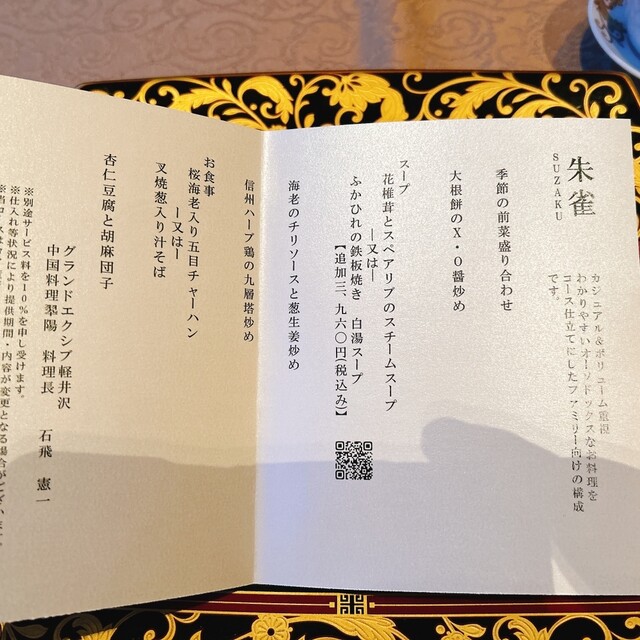 朱雀
SUZAKU
カジュアル&ボリューム重視
わかりやすいオーソドックスなお料理を
コース仕立てにしたファミリー向けの構成
です。
季節の前菜盛り合わせ
大根餅のX・O醤炒め
スープ
花椎茸とスペアリブのスチームスープ
―又は―
ふかひれの鉄板焼き 白湯スープ
【追加三、九六〇円(税込み)】
海老のチリソースと葱生姜炒め
信州ハーブ鶏の九層塔炒め
お食事
桜海老入り五目チャーハン
―又は―
叉焼葱入り汁そば
杏仁豆腐と胡麻団子
グランドエクシブ軽井沢
中国料理翠陽 料理長 石飛 憲一
※別途サービス料を10%を申し受けます。
※仕入れ等状況により提供期間・内容が変更となる場合がございます。